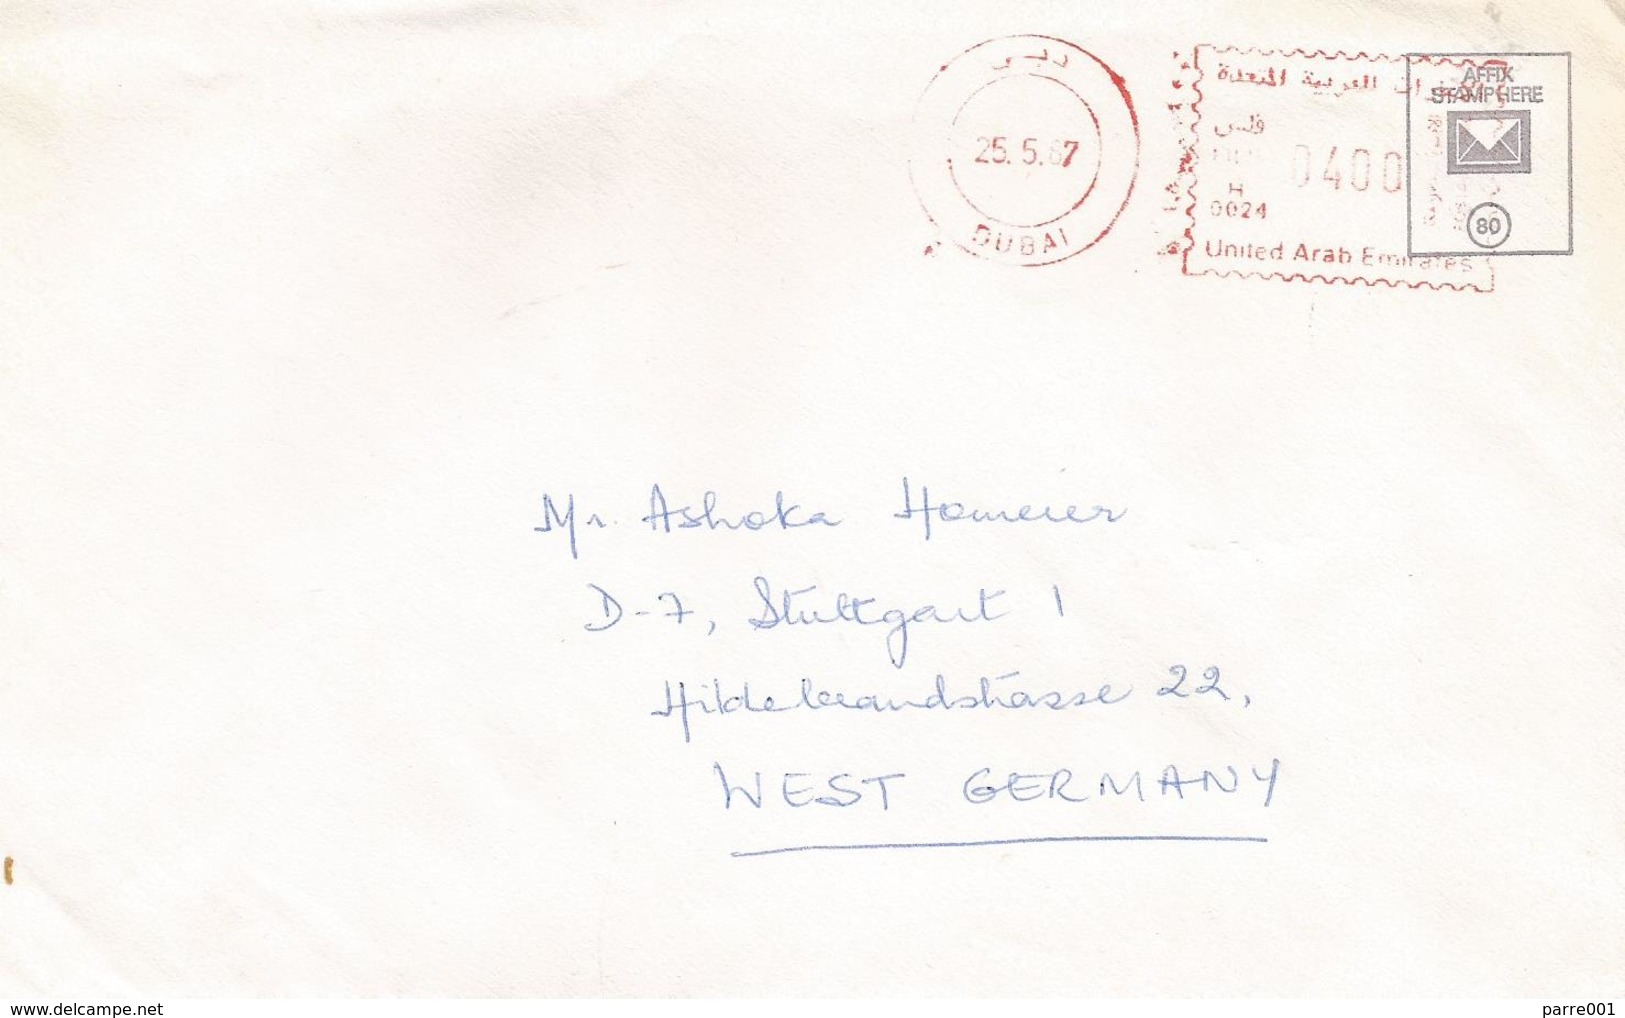 دبي
25.5.87
DUBAI
الإمارات العربية المتحدة
فلس
FILS
0400
H
0024
United Arab Emirates
AFFIX
STAMP HERE
80
Mr. Ashoka Homeier
D-7, Stuttgart 1
Hildebrandstrasse 22,
WEST GERMANY
www.delcampe.net
parre001